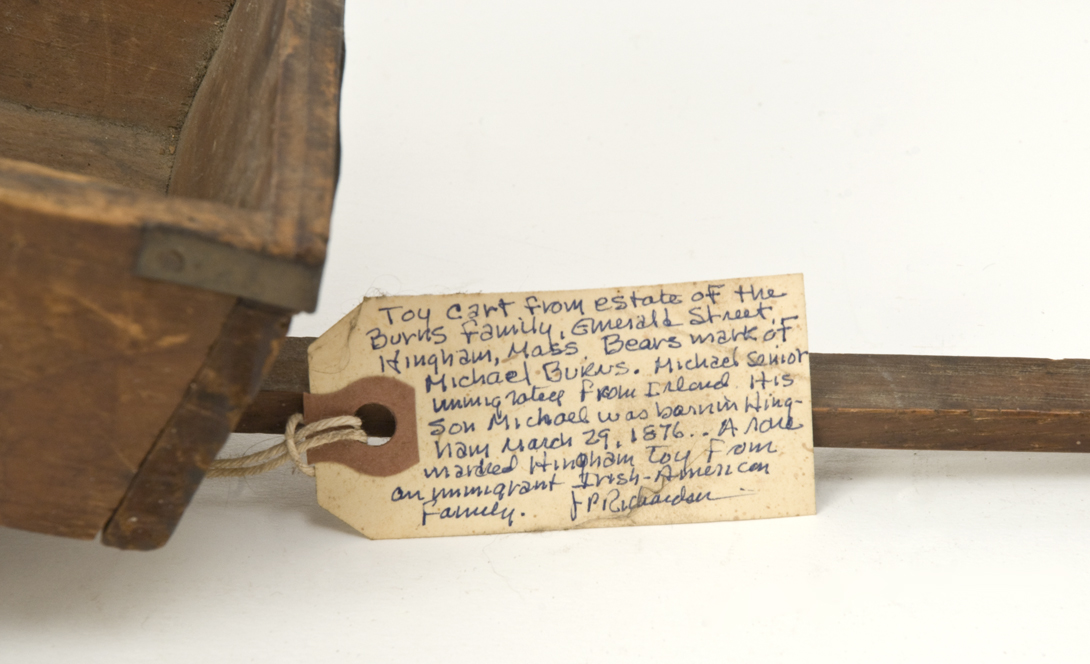 Toy cart from estate of the
Burns family, Emerald Street,
Hingham, Mass Bears mark of
Michael Burns. Michael senior
immigrated from Ireland His
son Michael was born in Hing-
ham March 29, 1876.. A rare
marked Hingham Toy from
an immigrant Irish-American
Family. J P Richardson